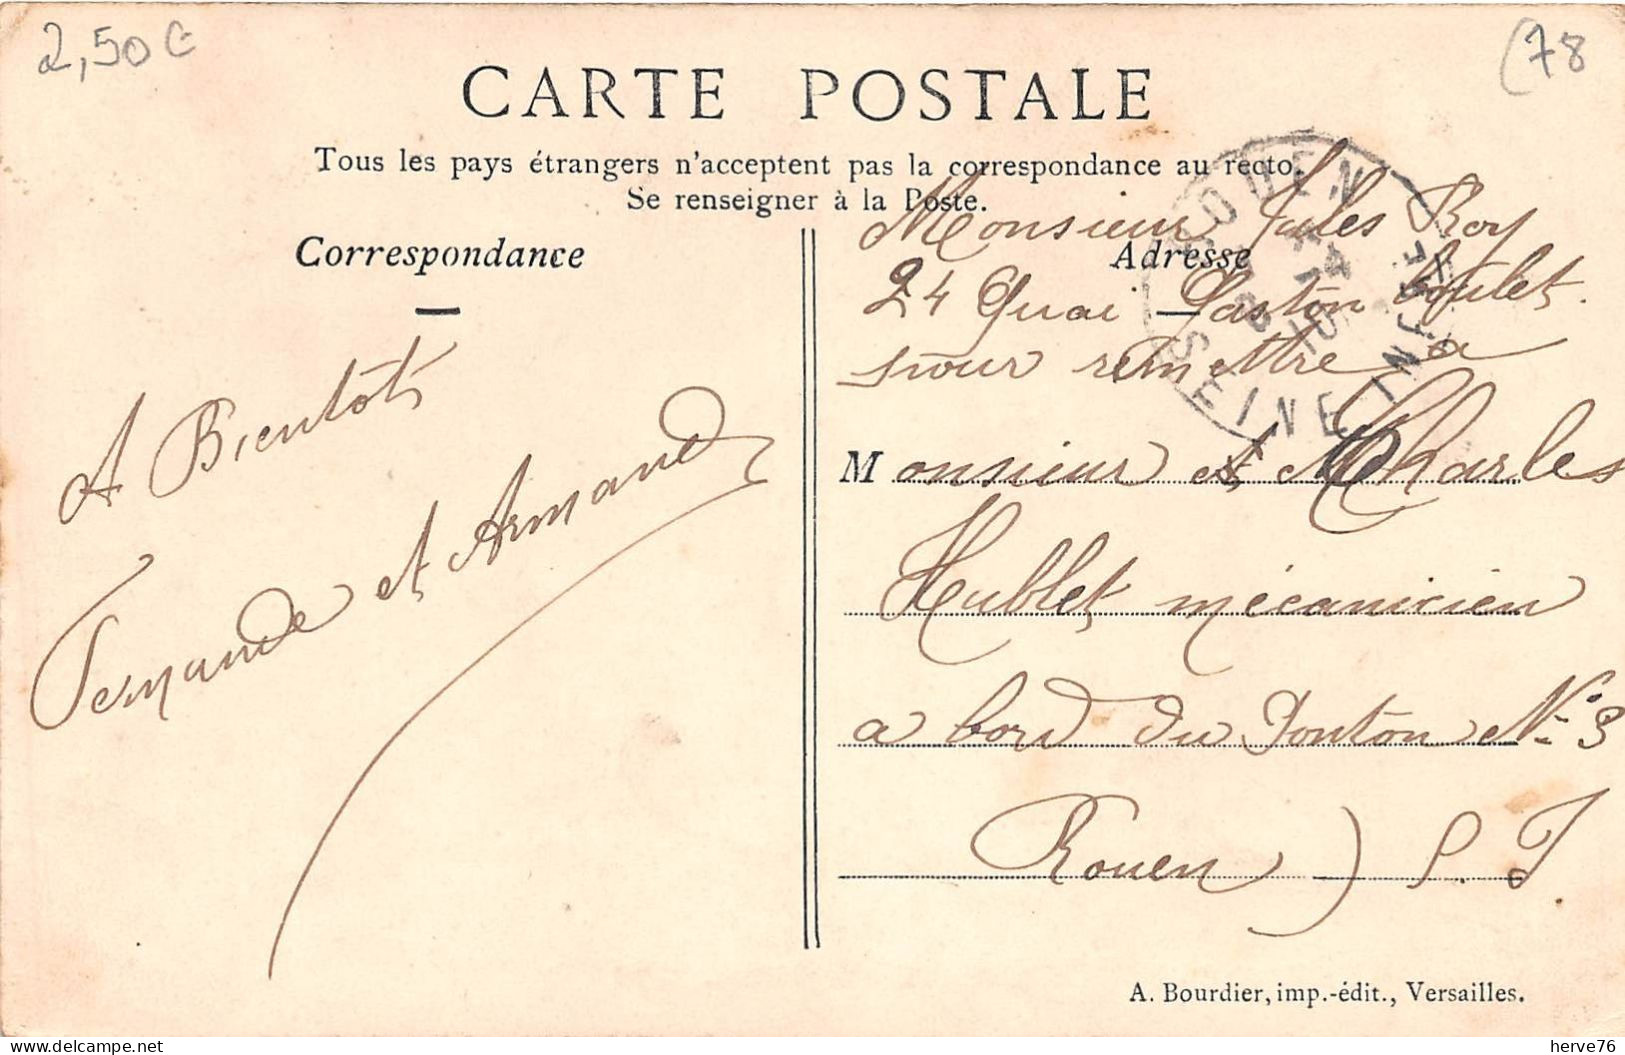 2,50€
(78
CARTE POSTALE
Tous les pays étrangers n'acceptent pas la correspondance au recto.
Se renseigner à la Poste.
Correspondance
A Bientôt
Fernande et Armand
Adresse
Monsieur Jules Roy
24 Quai Gaston boulet
pour remettre a
Monsieur Charles
Hublet mécanicien
a bord du Ponton No 3
Rouen ) S. I.
ROUEN
SEINE INFRE
A. Bourdier, imp.-édit., Versailles.
delcampe.net
herve76